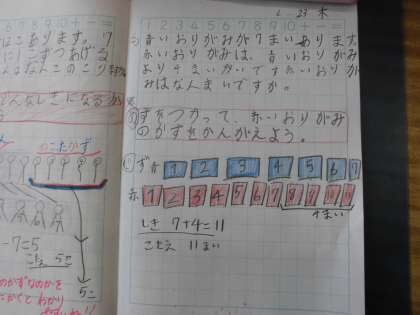 7 8 9 10 + - =
はこあります。7
にこずつあげる
なんこのこり
んなしきになるか
のこたかず
-7=5
こたえ 5こ
5こ
のかずなのかを
たかくて わかり
1 2 3 4 5 6 7 8 9 10 + - =
2-23 木
青いおりがみが7まいあります。
赤いおりがみは、青いおりがみ
より4まいおおいです。赤いおりが
みはなんまいですか。
ずをつかって、赤いおりがみ
のかずをかんがえよう。
ず 青 1 2 3 4 5 6 7
赤 1 2 3 4 5 6 7 8 9 10 11
4まい
しき 7+4=11
こたえ 11まい